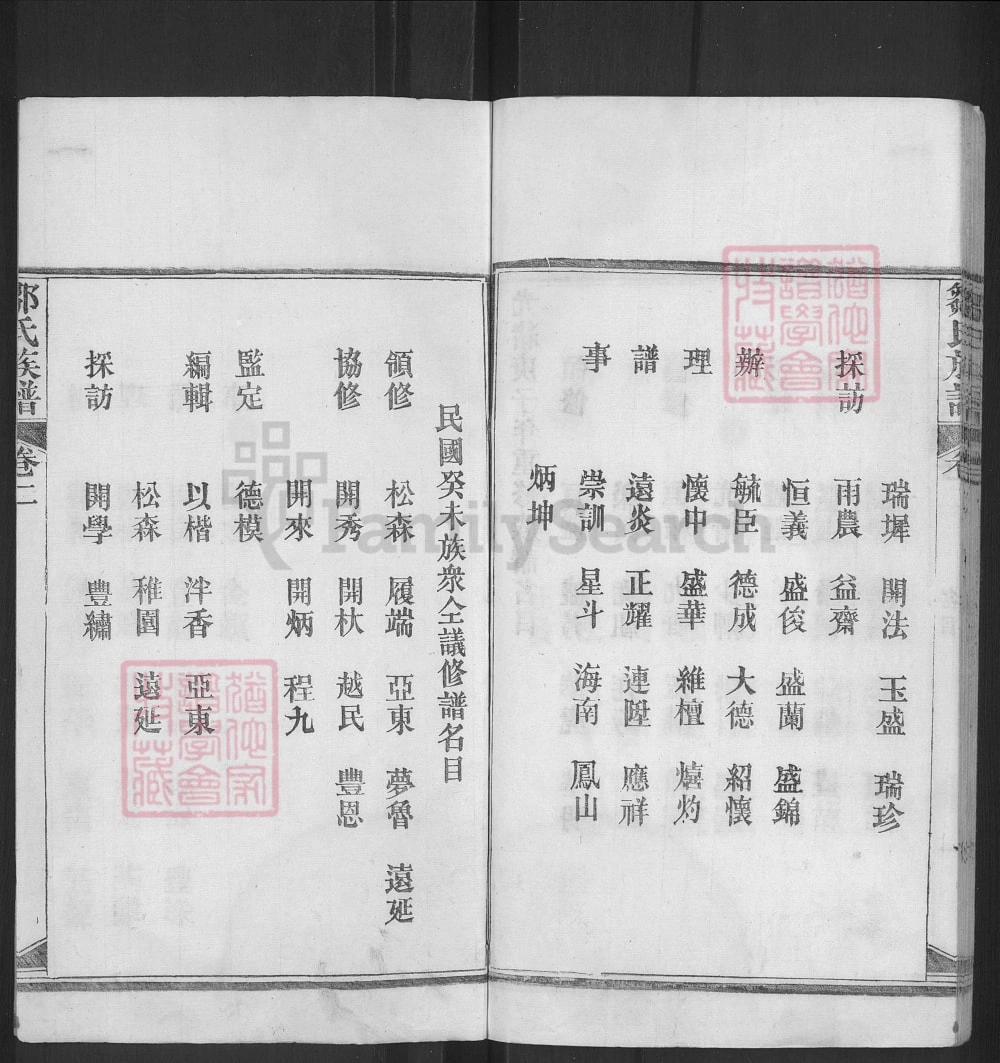 鄒氏族譜
瑞墀 開法 玉盛 瑞珍
採訪 雨農 益齋
恒義 盛俊 盛蘭 盛錦
辦 毓臣 德成 大德 紹懷
理 懷中 盛華 維檀 熺灼
譜 遠炎 正耀 連陞 應祥
事 崇訓 星斗 海南 鳳山
炳坤
民國癸未族眾仝議修譜名目
領修 松森 履端 亞東 夢魯 遠延
協修 開秀 開杕 越民 豐恩
開來 開炳 程九
監定 德模
編輯 以楷 泮香 亞東
松森 稚園 遠延
採訪 開學 豐繡
鄒氏族譜 卷二
FamilySearch